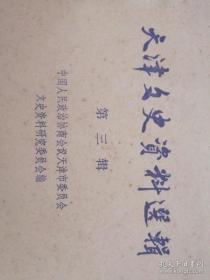 天津文史资料選輯
第三辑
中国人民政治协商会议天津市委员会
文史资料研究委员会编